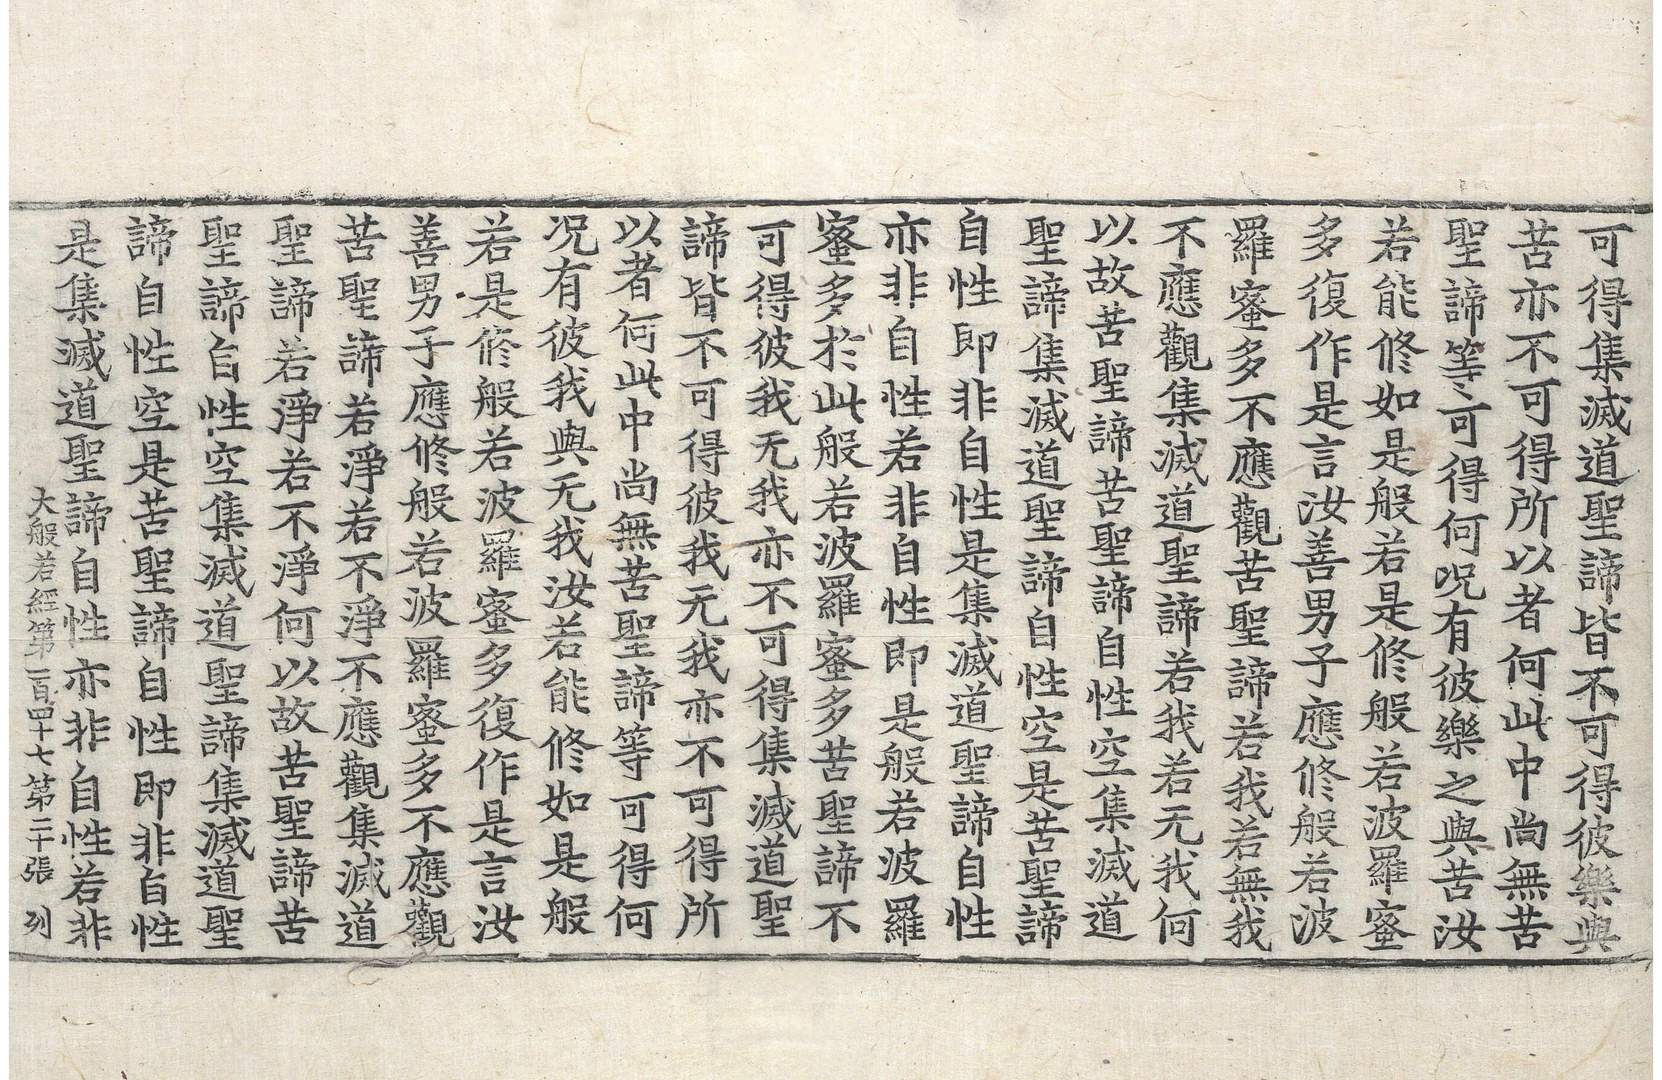 可得集滅道聖諦皆不可得彼樂與
苦亦不可得所以者何此中尚無苦
聖諦等可得何況有彼樂之與苦汝
若能修如是般若是修般若波羅蜜
多復作是言汝善男子應修般若波
羅蜜多不應觀苦聖諦若我若無我
不應觀集滅道聖諦若我若无我何
以故苦聖諦苦聖諦自性空集滅道
聖諦集滅道聖諦自性空是苦聖諦
自性即非自性是集滅道聖諦自性
亦非自性若非自性即是般若波羅
蜜多於此般若波羅蜜多苦聖諦不
可得彼我无我亦不可得集滅道聖
諦皆不可得彼我无我亦不可得所
以者何此中尚無苦聖諦等可得何
况有彼我與无我汝若能修如是般
若是修般若波羅蜜多復作是言汝
善男子應修般若波羅蜜多不應觀
苦聖諦若淨若不淨不應觀集滅道
聖諦若淨若不淨何以故苦聖諦苦
聖諦自性空集滅道聖諦集滅道聖
諦自性空是苦聖諦自性即非自性
是集滅道聖諦自性亦非自性若非
大般若經第一百四十七第二十張 列